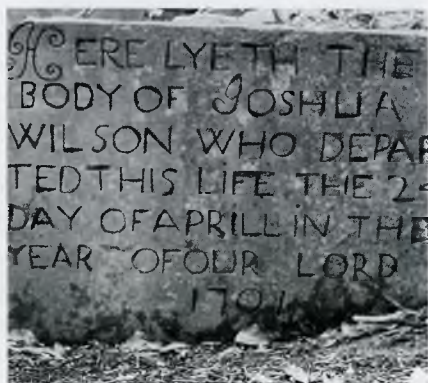 HERE LYETH THE
BODY OF JOSHUA
WILSON WHO DEPAR
TED THIS LIFE THE
DAY OF APRILL iN THE
YEAR OF OUR LORD
1701